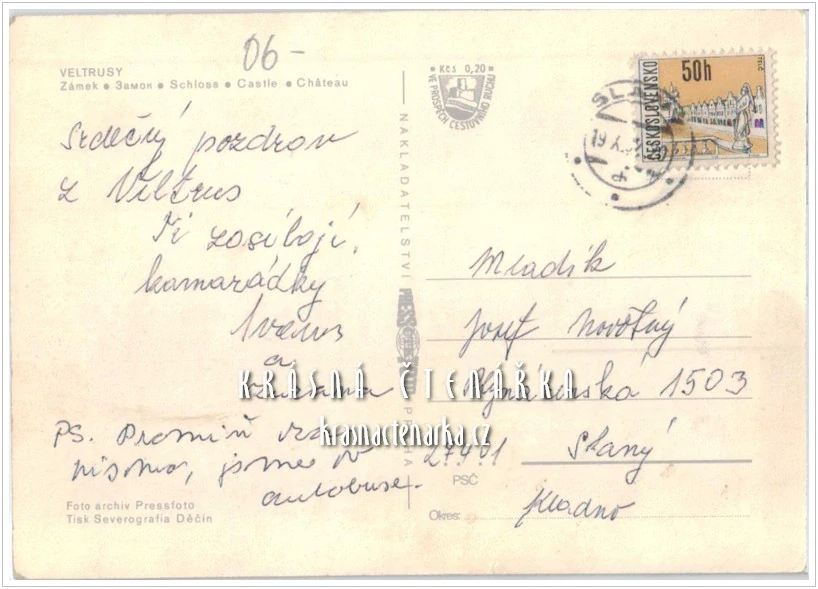 06-
VELTRUSY
Zámek • Замок • Schloss • Castle • Château
Kčs 0,20
VE PROSPĚCH CESTOVNÍHO RUCHU
ČESKOSLOVENSKO
50h
TELČ
Srdečný pozdrav
z Veltrus
Ti zasílají
kamarádky
a
PS. Promiň
písmo, jsme v
autobuse.
Foto archiv Pressfoto
Tisk Severografia Děčín
NAKLADATELSTVÍ
PRAHA
Mladík
Josef Novotný
1503
27401 Slaný
PSČ
Okres: Kladno
KRÁSNÁ ČTENÁŘKA
krasnactenarka.cz